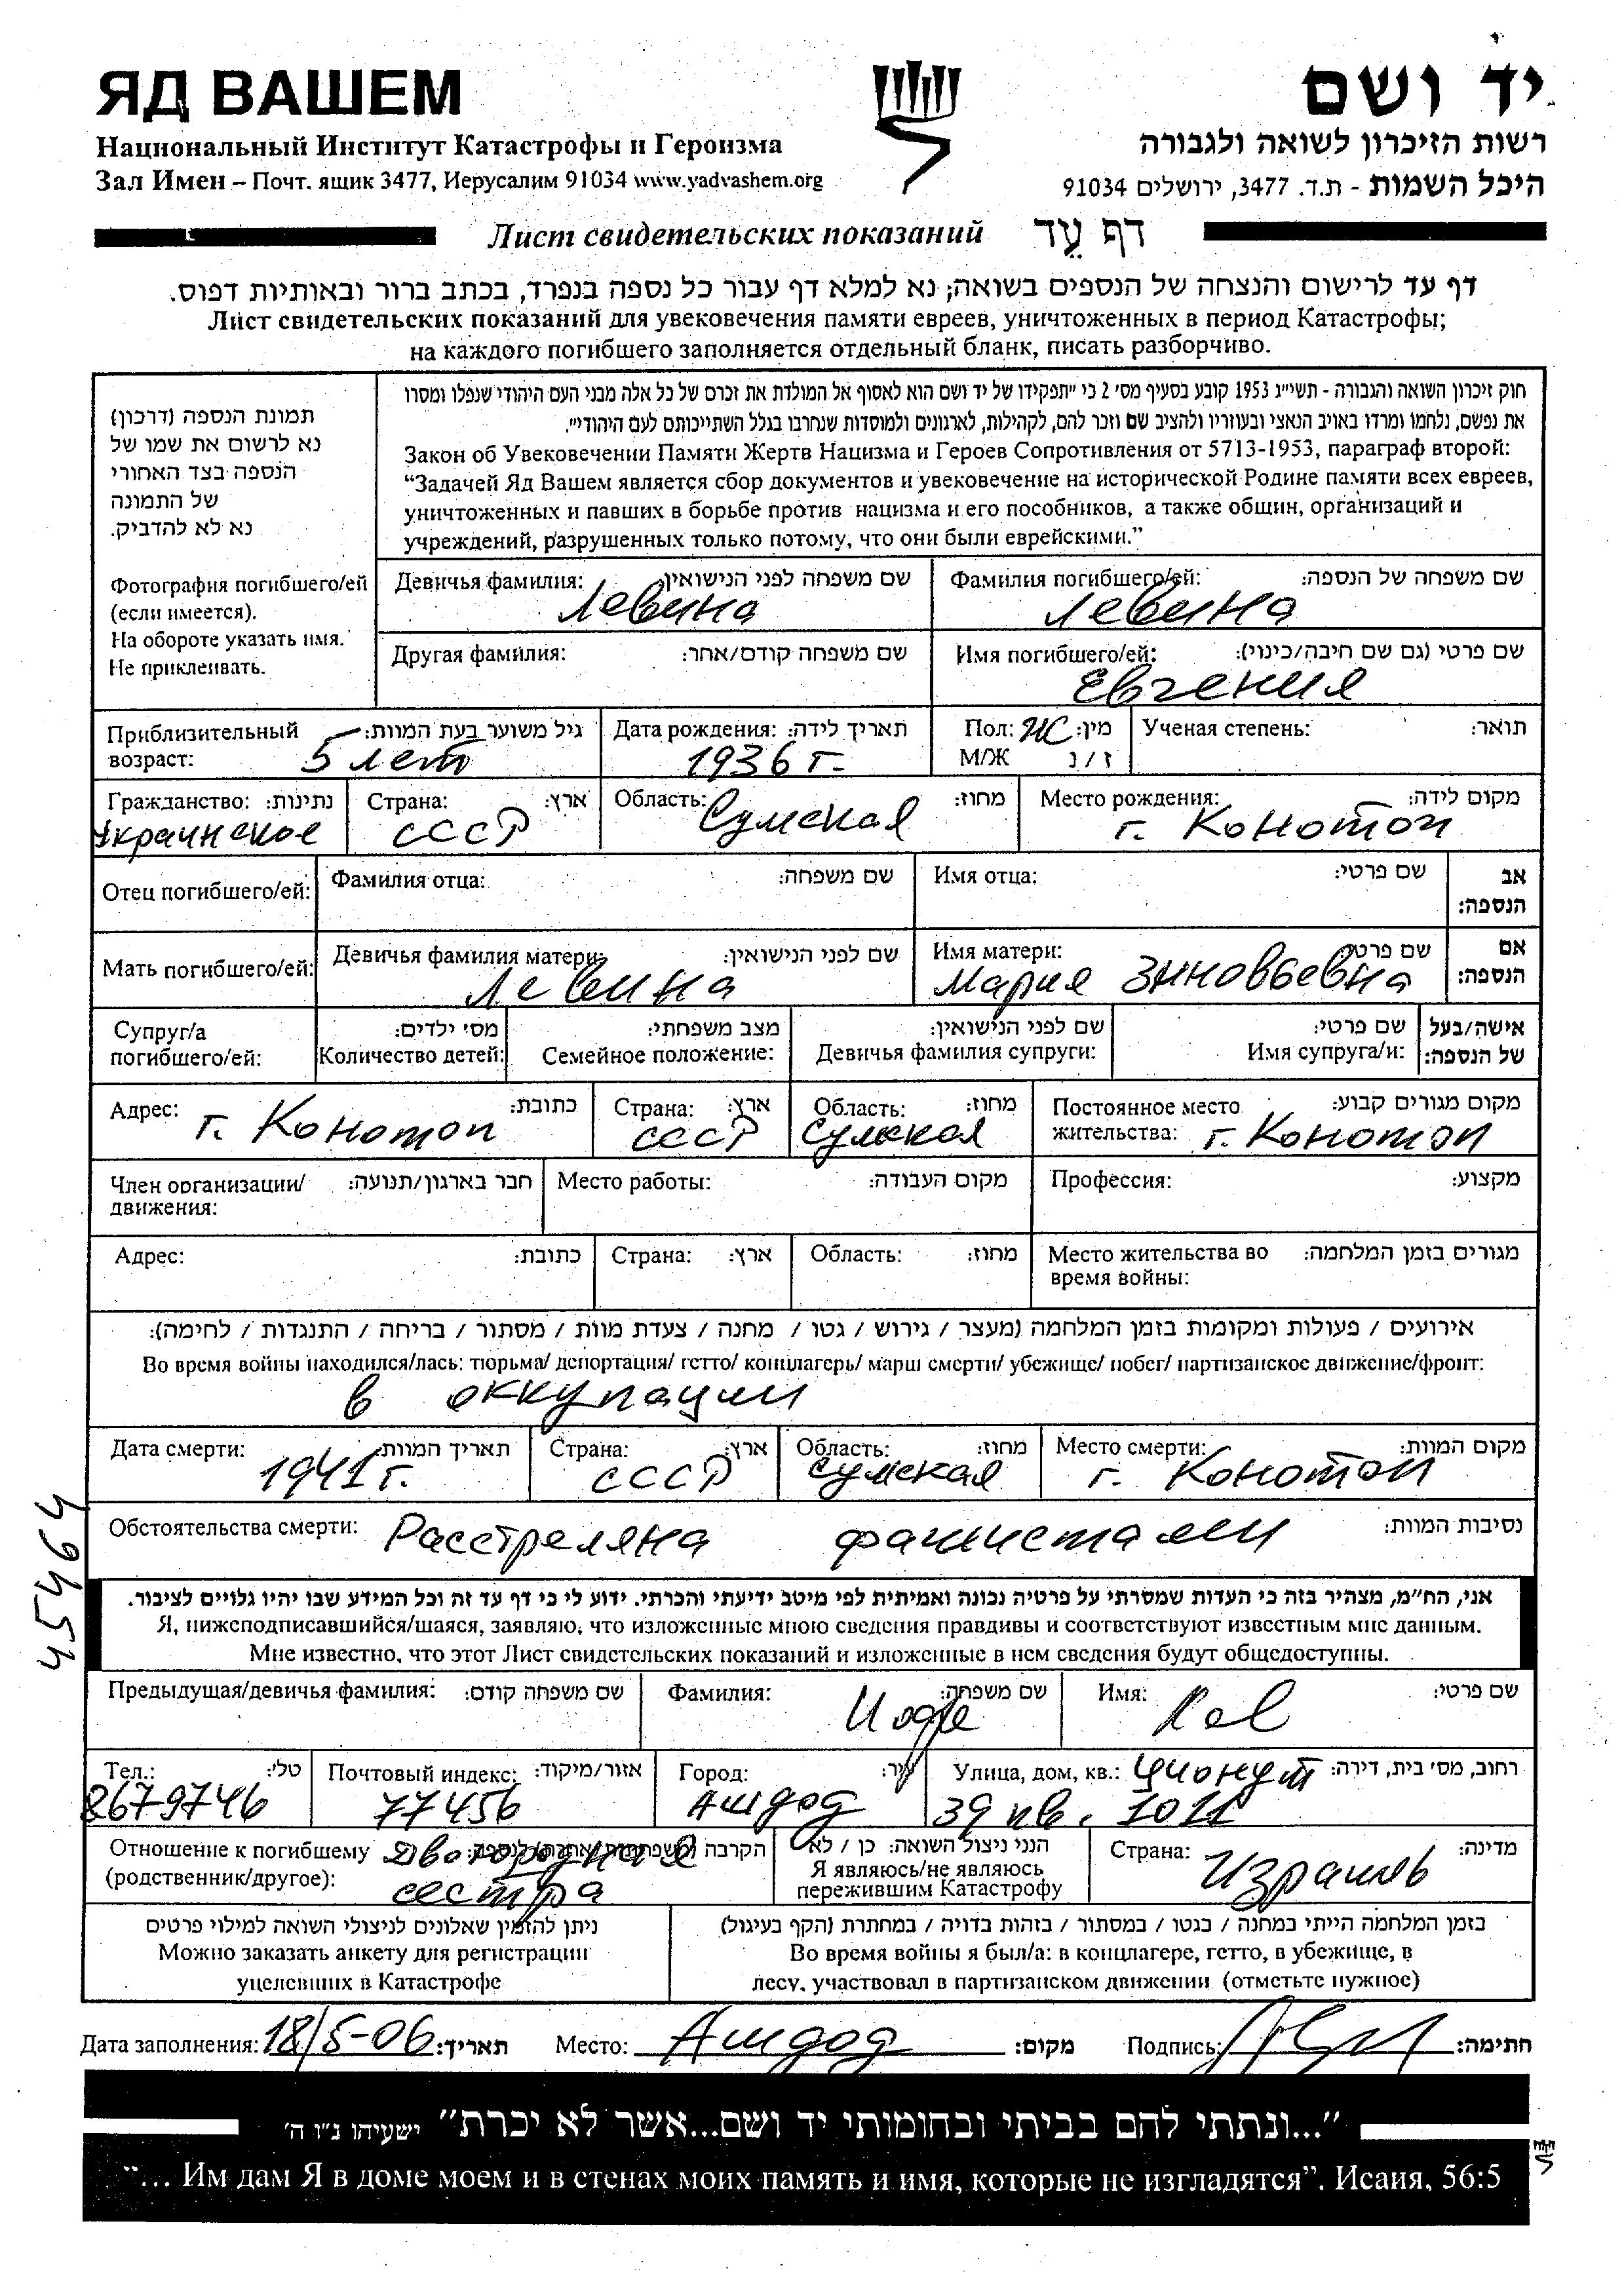 ЯД ВАШЕМ
יד ושם
Национальный Институт Катастрофы и Героизма
רשות הזיכרון לשואה ולגבורה
Зал Имен – Почт. ящик 3477, Иерусалим 91034 www.yadvashem.org
היכל השמות - ת.ד. 3477, ירושלים 91034
Лист свидетельских показаний דף עֵד
דף עד לרישום והנצחה של הנספים בשואה; נא למלא דף עבור כל נספה בנפרד, בכתב ברור ובאותיות דפוס.
Лист свидетельских показаний для увековечения памяти евреев, уничтоженных в период Катастрофы;
на каждого погибшего заполняется отдельный бланк, писать разборчиво.
תמונת הנספה (דרכון)
נא לרשום את שמו של
הנספה בצד האחורי
של התמונה
נא לא להדביק.
Фотография погибшего/ей
(если имеется).
На обороте указать имя.
Не приклеивать.
חוק זיכרון השואה והגבורה - תשי״ג 1953 קובע בסעיף מס׳ 2 כי ״תפקידו של יד ושם הוא לאסוף אל המולדת את זכרם של כל אלה מבני העם היהודי שנפלו ומסרו
את נפשם, נלחמו ומרדו באויב הנאצי ובעוזריו ולהציב שם וזכר להם, לקהילות, לארגונים ולמוסדות שנחרבו בגלל השתייכותם לעם היהודי״.
Закон об Увековечении Памяти Жертв Нацизма и Героев Сопротивления от 5713-1953, параграф второй:
“Задачей Яд Вашем является сбор документов и увековечение на исторической Родине памяти всех евреев,
уничтоженных и павших в борьбе против нацизма и его пособников, а также общин, организаций и
учреждений, разрушенных только потому, что они были еврейскими.”
Девичья фамилия: שם משפחה לפני הנישואין: Фамилия погибшего/ей: שם משפחה של הנספה:
Левина Левина
Другая фамилия: שם משפחה קודם/אחר: Имя погибшего/ей: שם פרטי (גם שם חיבה/כינוי):
Евгения
Приблизительный גיל משוער בעת המוות: Дата рождения: תאריך לידה: Пол: Ж מין: Ученая степень: תואר:
возраст: 5 лет 1936 г. М/Ж ז / נ
Гражданство: נתינות: Страна: ארץ: Область: מחוז: Место рождения: מקום לידה:
Украинское СССР Сумская г. Конотоп
Отец погибшего/ей: Фамилия отца: שם משפחה: Имя отца: שם פרטי: אב
הנספה:
Мать погибшего/ей: Девичья фамилия матери: שם לפני הנישואין: Имя матери: שם פרטי: אם
Левина Мария Зиновьевна הנספה:
Супруг/а מס׳ ילדים: מצב משפחתי: שם לפני הנישואין: שם פרטי: אישה/בעל
погибшего/ей: Количество детей: Семейное положение: Девичья фамилия супруги: Имя супруга/и: של הנספה:
Адрес: כתובת: Страна: ארץ: Область: מחוז: Постоянное место מקום מגורים קבוע:
г. Конотоп СССР Сумская жительства: г. Конотоп
Член организации/ חבר בארגון/תנועה: Место работы: מקום העבודה: Профессия: מקצוע:
движения:
Адрес: כתובת: Страна: ארץ: Область: מחוז: Место жительства во מגורים בזמן המלחמה:
время войны:
אירועים / פעולות ומקומות בזמן המלחמה (מעצר / גירוש / גטו / מחנה / צעדת מוות / מסתור / בריחה / התנגדות / לחימה):
Во время войны находился/лась: тюрьма/ депортация/ гетто/ концлагерь/ марш смерти/ убежище/ побег/ партизанское движение/фронт:
в оккупации
Дата смерти: תאריך המוות: Страна: ארץ: Область: מחוז: Место смерти: מקום המוות:
1941 г. СССР Сумская г. Конотоп
Обстоятельства смерти: Расстреляна фашистами נסיבות המוות:
45464
אני, הח״מ, מצהיר בזה כי העדות שמסרתי על פרטיה נכונה ואמיתית לפי מיטב ידיעתי והכרתי. ידוע לי כי דף עד זה וכל המידע שבו יהיו גלויים לציבור.
Я, нижеподписавшийся/шаяся, заявляю, что изложенные мною сведения правдивы и соответствуют известным мне данным.
Мне известно, что этот Лист свидетельских показаний и изложенные в нем сведения будут общедоступны.
Предыдущая/девичья фамилия: שם משפחה קודם: Фамилия: שם משפחה: Имя: שם פרטי:
Иоффе
Тел.: טל׳: Почтовый индекс: אזור/מיקוד: Город: עיר: Улица, дом, кв.: Ционут רחוב, מס׳ בית, דירה:
8679746 77456 Ашдод 39 кв. 1011
Отношение к погибшему Двоюродная הקרבה (משפחתית/אחרת) לנספה: הנני ניצול השואה: כן / לא Страна: מדינה:
(родственник/другое): сестра Я являюсь/не являюсь Израиль
пережившим Катастрофу
ניתן להזמין שאלונים לניצולי השואה למילוי פרטים בזמן המלחמה הייתי במחנה / בגטו / במסתור / בזהות בדויה / במחתרת (הקף בעיגול)
Можно заказать анкету для регистрации Во время войны я был/а: в концлагере, гетто, в убежище, в
уцелевших в Катастрофе лесу, участвовал в партизанском движении (отметьте нужное)
Дата заполнения: 18/5-06 תאריך: Место: Ашдод מקום: Подпись: חתימה:
״...ונתתי להם בביתי ובחומותי יד ושם...אשר לא יכרת״ ישעיהו נ״ו ה׳
“... Им дам Я в доме моем и в стенах моих память и имя, которые не изгладятся”. Исаия, 56:5